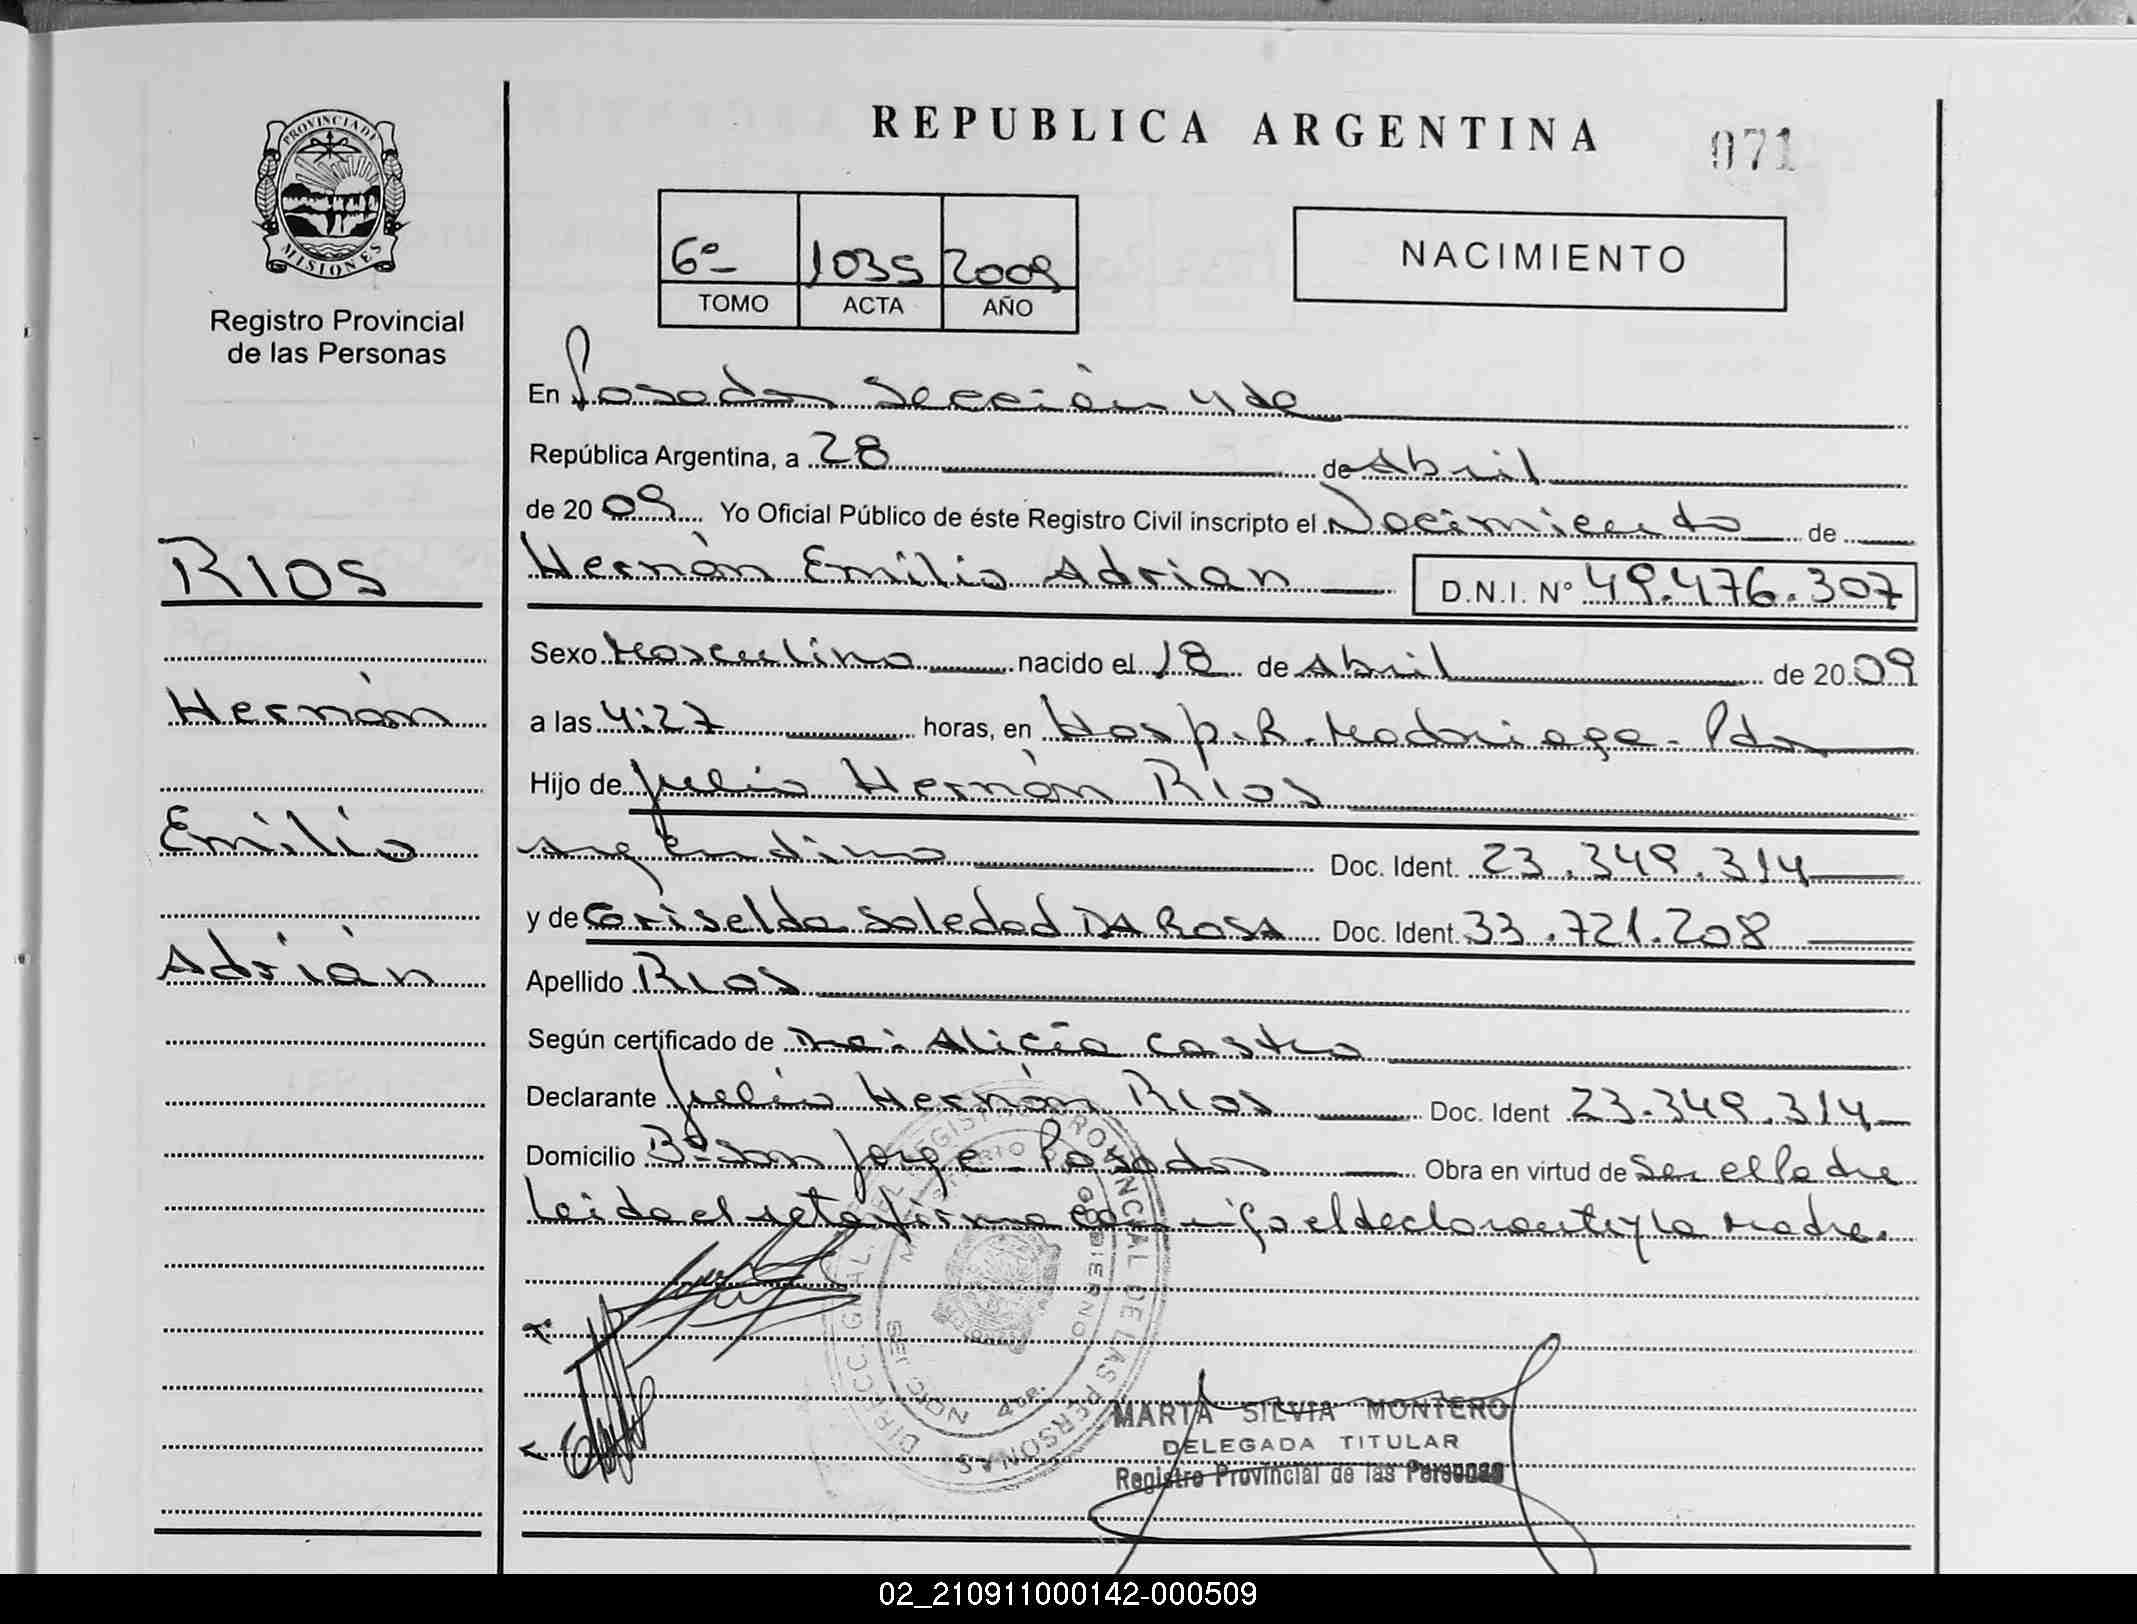 PROVINCIA DE
MISIONES
Registro Provincial
de las Personas
RIOS
Hernán
Emilio
Adrián
REPUBLICA ARGENTINA
071
6º 1035 2009
TOMO ACTA AÑO
NACIMIENTO
En Posadas Sección 4ta
República Argentina, a 28 de Abril
de 2009 Yo Oficial Público de éste Registro Civil inscripto el Nacimiento de
Hernán Emilio Adrian D.N.I. Nº 49.476.307
Sexo Masculino nacido el 18 de Abril de 2009
a las 4:27 horas, en Hosp. R. Madariaga - Pdas
Hijo de Julio Hernán Ríos
argentino Doc. Ident. 23.349.314
y de Griselda Soledad DA ROSA Doc. Ident. 33.721.208
Apellido Rios
Según certificado de Dra: Alicia Castro
Declarante Julio Hernán Rios Doc. Ident 23.349.314
Domicilio Bº San Jorge - Posadas Obra en virtud de Ser el Padre
Leida el acta firma conmigo el declarante y la madre.
DIRECC. GRAL. DEL REGISTRO PROVINCIAL DE LAS PERSONAS
MINISTERIO DE GOBIERNO
SECCION 4ta.
MARTA SILVIA MONTERO
DELEGADA TITULAR
Registro Provincial de las Personas
02_210911000142-000509